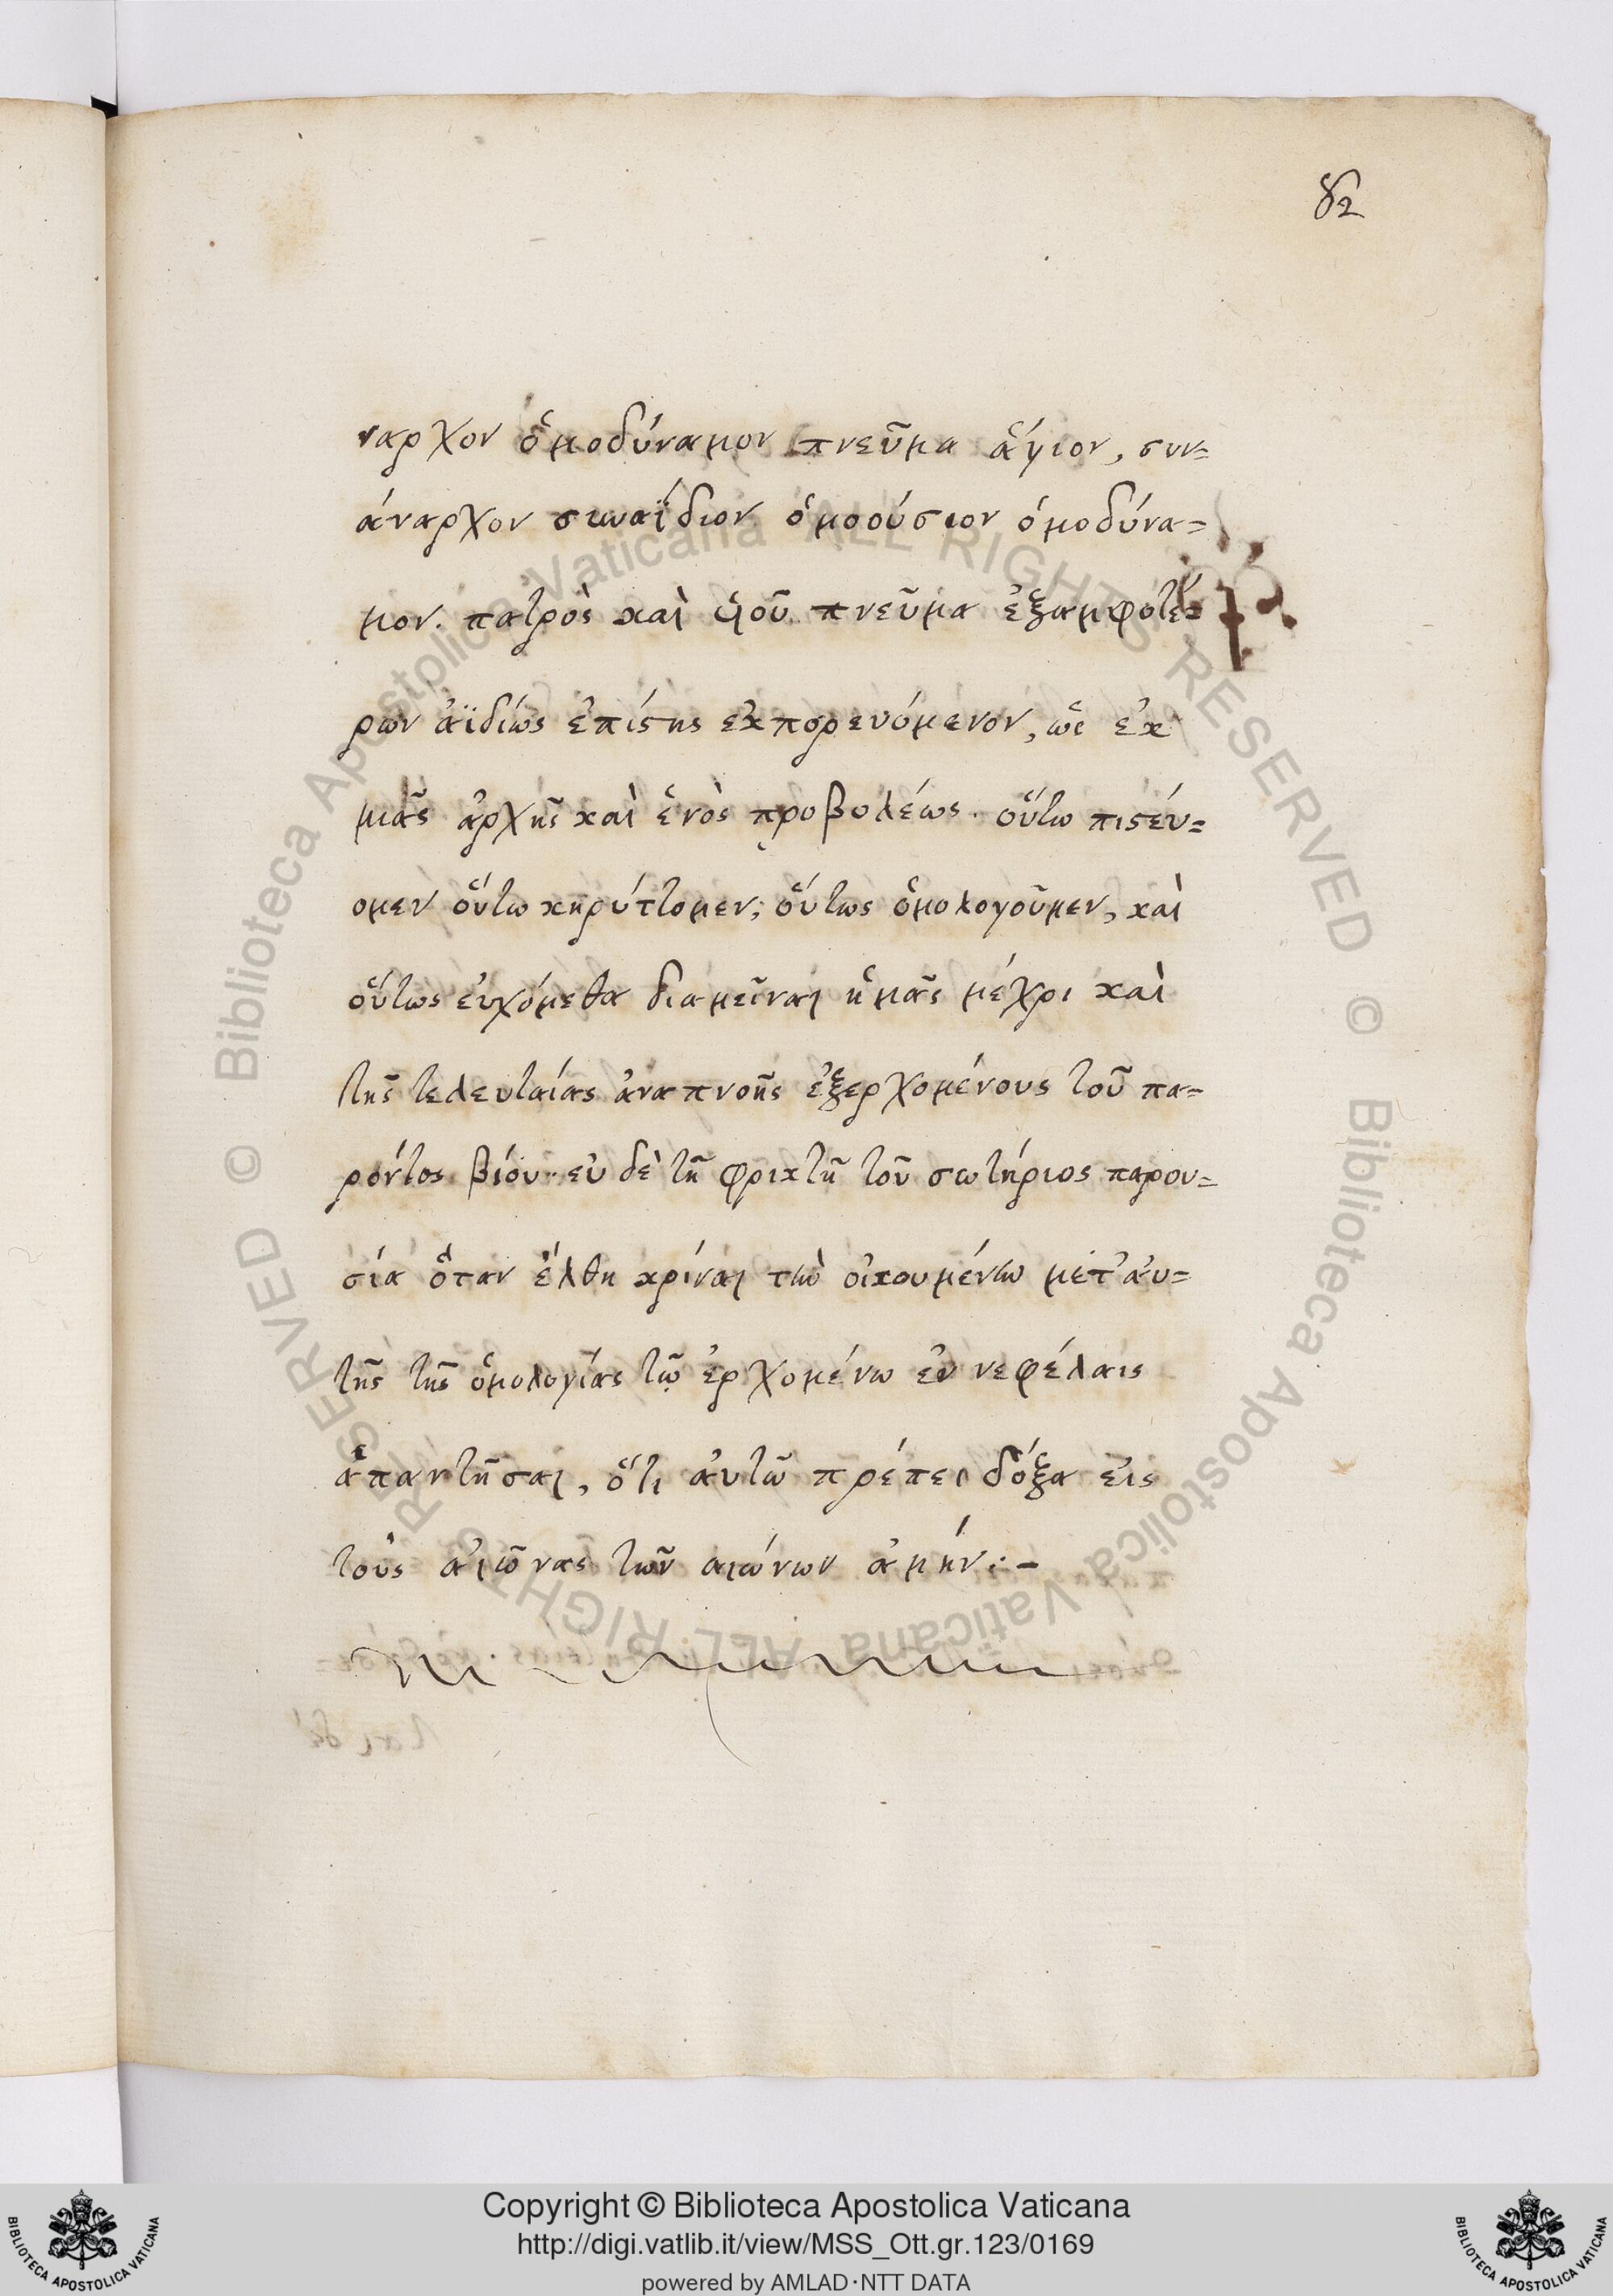 82
ναρχον ὁμοδύναμον πνεῦμα ἅγιον, συν=
άναρχον συναΐδιον ὁμοούσιον ὁμοδύνα=
μον. πατρὸς καὶ υἱοῦ πνεῦμα ἐξαμφοτέ=
ρων ἀϊδίως ἐπίσης ἐκπορευόμενον, ὡς ἐκ
μιᾶς ἀρχῆς καὶ ἑνὸς προβολέως. οὕτω πιστεύ=
ομεν οὕτω κηρύττομεν; οὕτως ὁμολογοῦμεν, καὶ
οὕτως εὐχόμεθα διαμεῖναι ἡμᾶς μέχρι καὶ
τῆς τελευταίας ἀναπνοῆς ἐξερχομένους τοῦ πα=
ρόντος βίου. ἐν δὲ τῆ φρικτῆ τοῦ σωτήριος παρου=
σία ὅταν ἔλθη κρίναι τὴν οἰκουμένην μετ' αὐ=
τῆς τῆς ὁμολογίας τῷ ἐρχομένω ἐν νεφέλαις
ἁπαντῆσαι, ὅτι αὐτῶ πρέπει δόξα εἰς
τοὺς αἰῶνας τῶν αιώνων ἀμήν:-
© Biblioteca Apostolica Vaticana ALL RIGHTS RESERVED
© Biblioteca Apostolica Vaticana ALL RIGHTS RESERVED
Copyright © Biblioteca Apostolica Vaticana
http://digi.vatlib.it/view/MSS_Ott.gr.123/0169
powered by AMLAD·NTT DATA
BIBLIOTECA APOSTOLICA VATICANA
BIBLIOTECA APOSTOLICA VATICANA